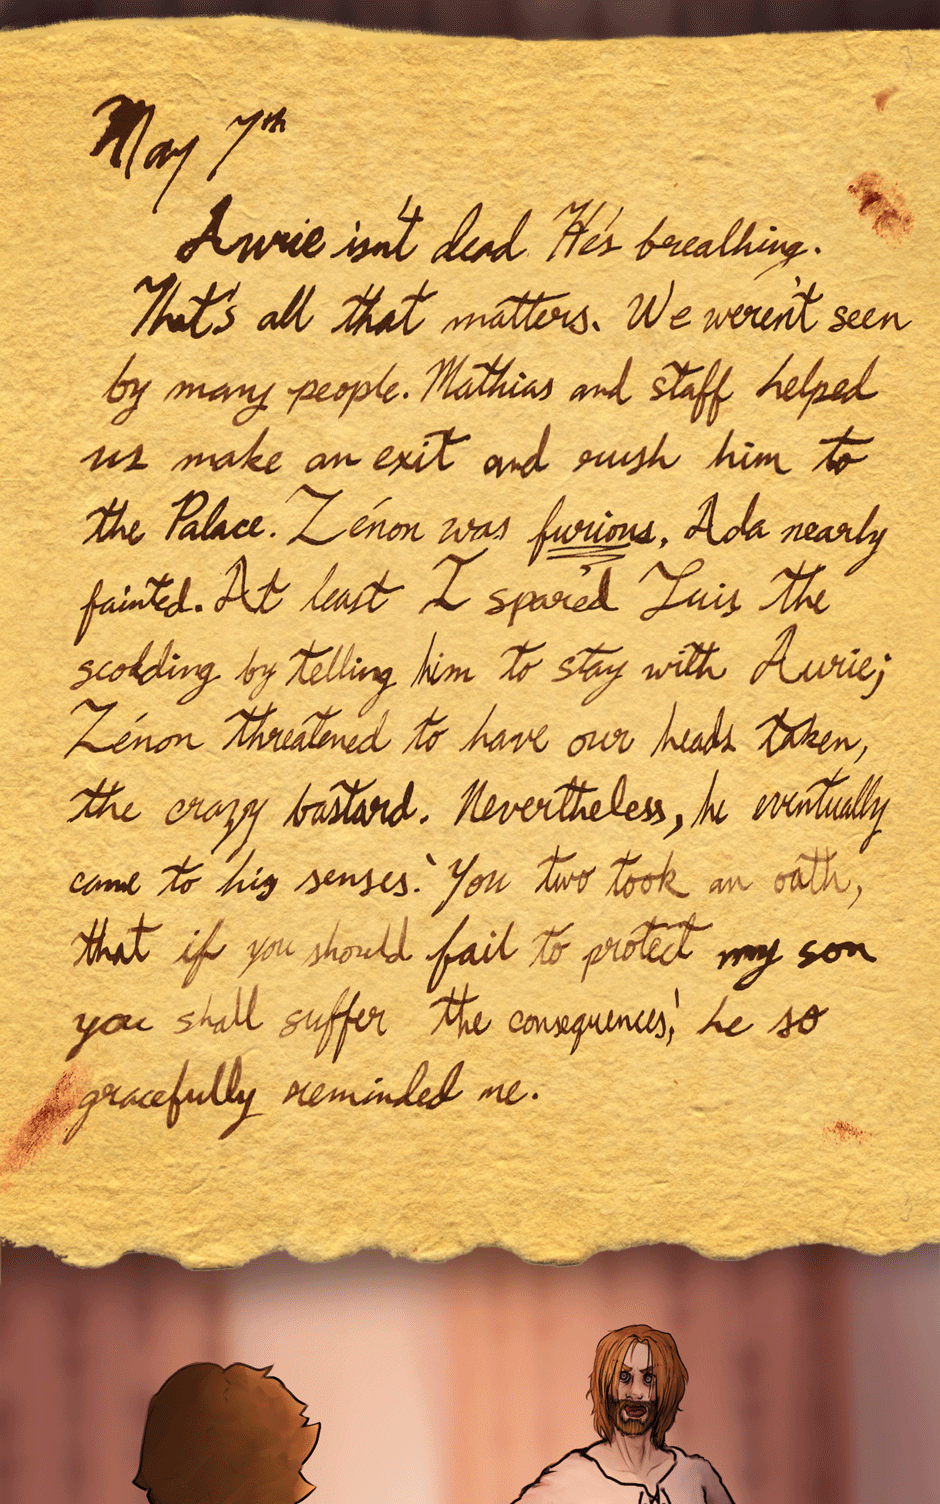 May 7th
Aurie isn't dead. He's breathing.
That's all that matters. We weren't seen
by many people. Mathias and staff helped
us make an exit and rush him to
the Palace. Zénon was furious, Ada nearly
fainted. At least I spared Luis the
scolding by telling him to stay with Aurie;
Zénon threatened to have our heads taken,
the crazy bastard. Nevertheless, he eventually
came to his senses. 'You two took an oath,
that if you should fail to protect my son
you shall suffer the consequences,' he so
gracefully reminded me.